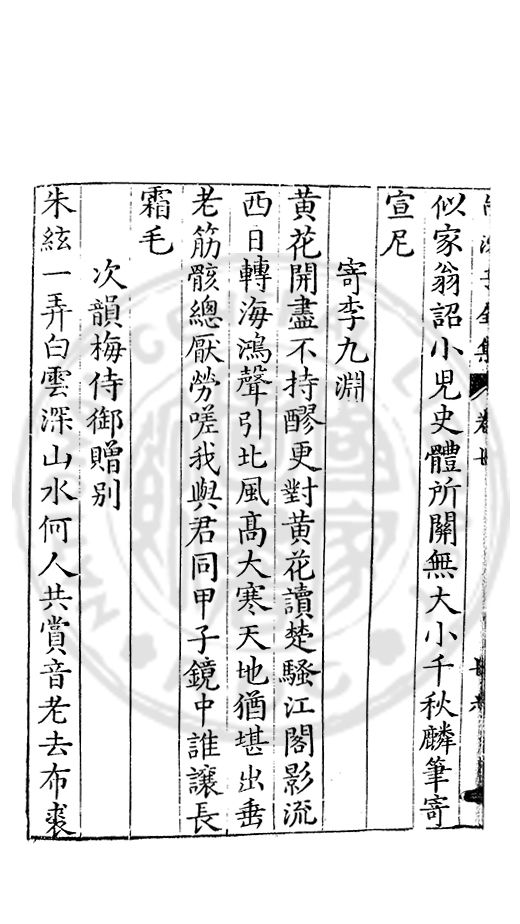 似家翁詔小児史體所關無大小千秋麟筆寄
宣尼
寄李九淵
黄花開盡不持醪更對黄花讀楚騷江閣影流
西日轉海鴻聲引北風高大寒天地猶堪出垂
老筋骸總厭勞嗟我與君同甲子鏡中誰讓長
霜毛
次韻梅侍御贈别
朱絃一弄白雲深山水何人共賞音老去布裘